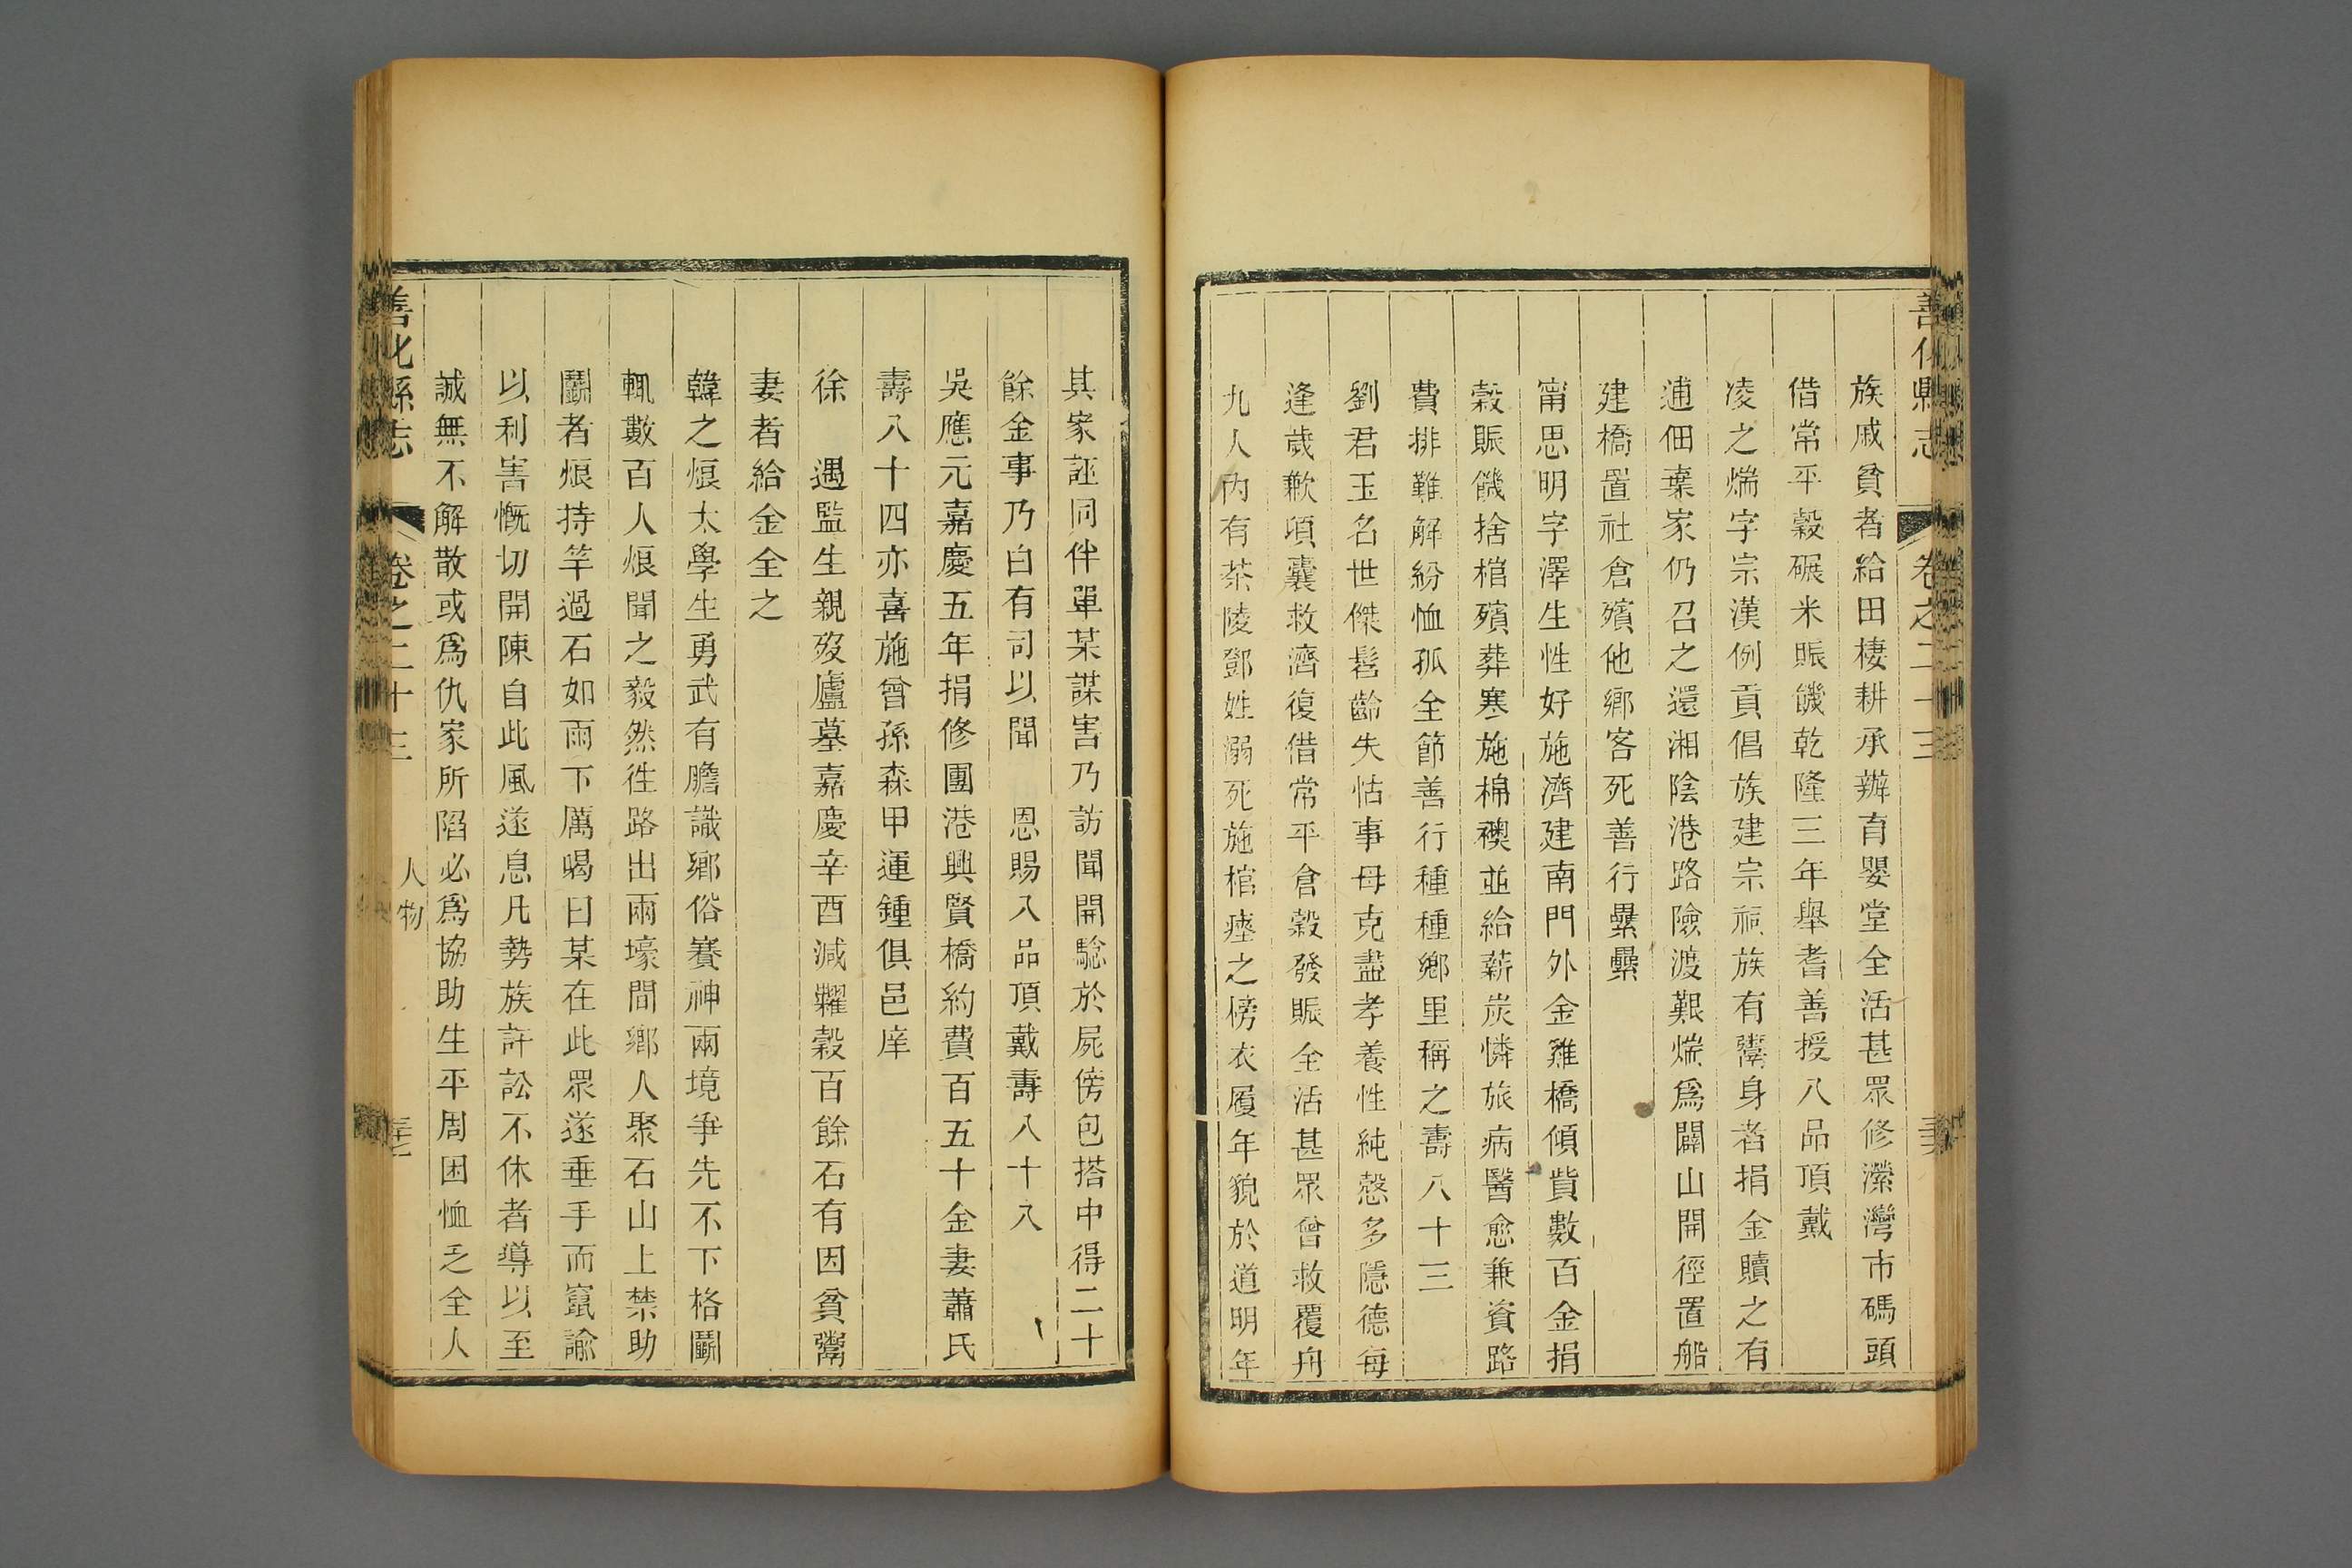 善化縣志
卷之二十三
族戚貧者給田棲耕承辦育嬰堂全活甚眾修濚灣市碼頭
借常平穀碾米賑饑乾隆三年舉耆善授八品頂戴
凌之煓字宗漢例貢倡族建宗祠族有鬻身者捐金贖之有
逋佃棄家仍召之還湘陰港路險渡艱煓爲闢山開徑置船
建橋置社倉殯他鄉客死善行纍纍
甯思明字澤生性好施濟建南門外金雞橋傾貲數百金捐
穀賑饑捨棺殯葬寒施棉襖並給薪炭憐旅病醫愈兼資路
費排難解紛恤孤全節善行種種鄉里稱之壽八十三
劉君玉名世傑髫齡失怙事母克盡孝養性純慤多隱德每
逢歲歉傾囊救濟復借常平倉穀發賑全活甚眾曾救覆舟
九人內有茶陵鄧姓溺死施棺瘞之榜衣履年貌於道明年
其家誣同伴單某謀害乃訪聞開驗於屍傍包搭中得二十
餘金事乃白有司以聞　恩賜八品頂戴壽八十八
吳應元嘉慶五年捐修團港興賢橋約費百五十金妻蕭氏
壽八十四亦喜施曾孫森甲運鍾俱邑庠
徐　遇監生親歿廬墓嘉慶辛酉減糶穀百餘石有因貧鬻
妻者給金全之
韓之烺太學生勇武有膽識鄉俗賽神兩境爭先不下格鬭
輒數百人烺聞之毅然徃路出兩壕間鄉人聚石山上禁助
鬭者烺持竿過石如雨下厲喝曰某在此眾遂垂手而竄諭
以利害慨切開陳自此風遂息凡勢族訐訟不休者導以至
誠無不解散或爲仇家所陷必爲協助生平周困恤乏全人
善化縣志
卷之二十三
人物